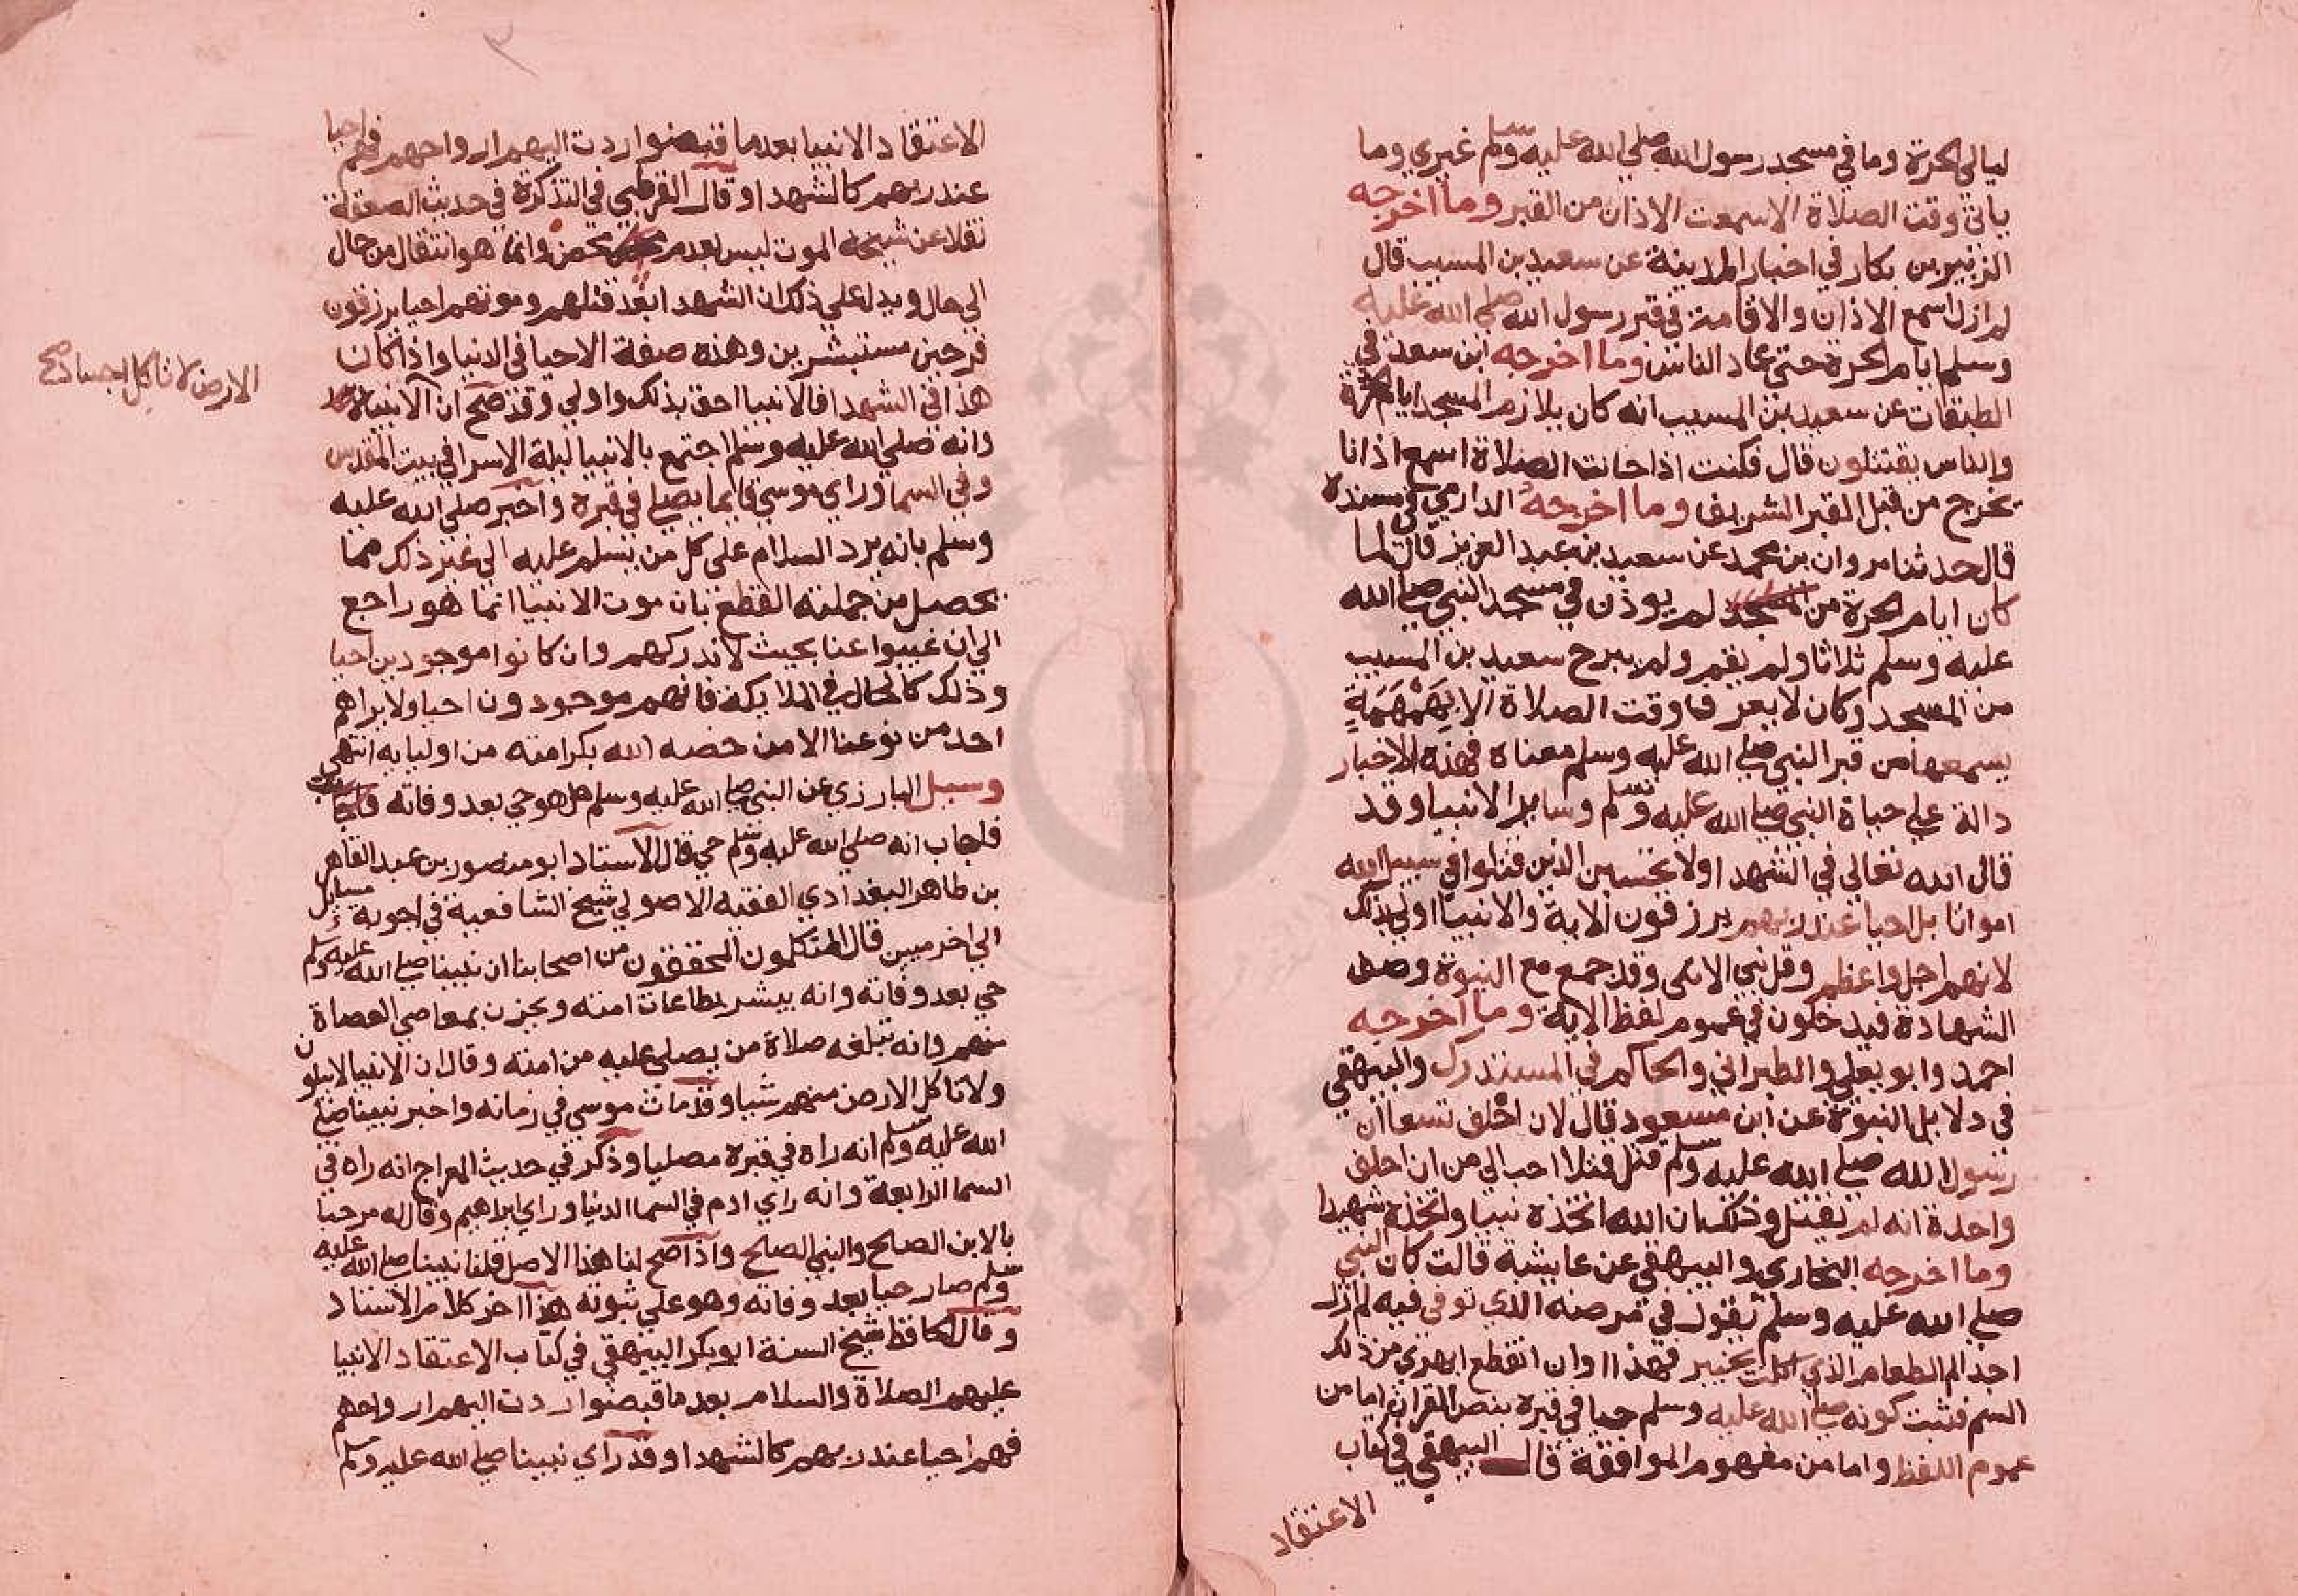 ليالي الحرة وما في مسجد رسول الله صلي الله عليه وسلم غيري وما
ياتي وقت الصلاة الا سمعت الاذان من القبر وما اخرجه
الزبير بن بكار في اخبار المدينة عن سعيد بن المسيب قال
لم ازل اسمع الاذان والاقامة في قبر رسول الله صلي الله عليه
وسلم ايام الحرة حتي عاد الناس وما اخرجه ابن سعد في
الطبقات عن سعيد بن المسيب انه كان يلازم المسجد ايام الحرة
والناس يقتتلون قال فكنت اذا حانت الصلاة اسمع اذانا
يخرج من قبل القبر الشريف وما اخرجه الدارمي في مسنده
قال حدثنا مروان بن محمد عن سعيد بن عبد العزيز قال لما
كان ايام الحرة من المسجد لم يوذن في مسجد النبي صلي الله
عليه وسلم ثلاثا ولم يقم ولم يبرح سعيد بن المسيب
من المسجد وكان لا يعرف وقت الصلاة الا بِهَمْهَمَةٍ
يسمعها من قبر النبي صلي الله عليه وسلم معناه فهذه الاخبار
دالة علي حياة النبي صلي الله عليه وسلم وساير الانبيا وقد
قال الله تعالي في الشهدا ولا يحسبن الذين قتلوا في سبيل الله
امواتا بل احيا عند ربهم يرزقون الاية والانبيا اولي بذلك
لانهم اجل واعظم وقل نبي الا نبي وقد جمع مع النبوة وصف
الشهادة فيدخلون في عموم لفظ الاية وما اخرجه
احمد وابو يعلي والطبراني والحاكم في المستدرك والبيهقي
في دلايل النبوة عن ابن مسعود قال لان احلف تسعا ان
رسول الله صلي الله عليه وسلم قتل قتلا احب الي من ان احلف
واحدة انه لم يقتل وذلك ان الله اتخذه نبيا واتخذه شهيدا
وما اخرجه البخاري والبيهقي عن عايشة قالت كان النبي
صلي الله عليه وسلم يقول في مرضه الذي توفي فيه لم ازل
اجد الم الطعام الذي اكلت بخيبر فهذا اوان انقطع ابهري من ذلك
السم فثبت كونه صلي الله عليه وسلم حيا في قبره بنص القران اما من
عموم اللفظ واما من مفهوم الموافقة قال البيهقي في كتاب
الاعتقاد
الاعتقاد الانبيا بعد ما قبضوا ردت اليهم ارواحهم فهم احيا
عند ربهم كالشهدا وقال القرطبي في التذكرة في حديث الصعقة
نقلا عن شيخه الموت ليس بعدم محض وانما هو انتقال من حال
الي حال ويدل علي ذلك ان الشهدا بعد قتلهم وموتهم احيا يرزقون
فرحين مستبشرين وهذه صفة الاحيا في الدنيا واذا كان
هذا في الشهدا فالانبيا احق بذلك واولي وقد صح ان الانبيا
الارض لا تاكل اجساد صح
وانه صلي الله عليه وسلم اجتمع بالانبيا ليلة الاسرا في بيت المقدس
وفي السما وراي موسي قايما يصلي في قبره واخبر صلي الله عليه
وسلم بانه يرد السلام علي كل من يسلم عليه الي غير ذلك مما
يحصل من جملته القطع بان موت الانبيا انما هو راجع
الي ان غيبوا عنا بحيث لا ندركهم وان كانوا موجودين احيا
وذلك كالحال في الملايكة فانهم موجودون احيا ولا يراهم
احد من نوعنا الا من خصه الله بكرامته من اوليايه انتهي
وسيل البارزي عن النبي صلي الله عليه وسلم هل هو حي بعد وفاته
فاجاب انه صلي الله عليه وسلم حي قال الاستاد ابو منصور بن عبد القاهر
بن طاهر البغدادي الفقيه الاصولي شيخ الشافعية في اجوبة مسايل
الي اخر مبين قال المتكلمون المحققون من اصحابنا ان نبينا صلي الله عليه وسلم
حي بعد وفاته وانه يبشر بطاعات امته ويحزن بمعاصي العصاة
منهم وانه تبلغه صلاة من يصلي عليه من امته وقال ان الانبيا لا يبلون
ولا تاكل الارض منهم شيا وقد مات موسي في زمانه واخبر نبينا صلي
الله عليه وسلم انه راه في قبره مصليا وذكر في حديث المعراج انه راه في
السما الرابعة وانه راي ادم في السما الدنيا وراي ابراهيم وقال له مرحبا
بالابن الصالح والنبي الصالح واذا صح لنا هذا الاصل قلنا نبينا صلي الله عليه
وسلم صار حيا بعد وفاته وهو علي ثبوته هذا اخر كلام الاستاد
وقال الحافظ شيخ السنة ابو بكر البيهقي في كتاب الاعتقاد الانبيا
عليهم الصلاة والسلام بعد ما قبضوا ردت اليهم ارواحهم
فهم احيا عند ربهم كالشهدا وقد راي نبينا صلي الله عليه وسلم